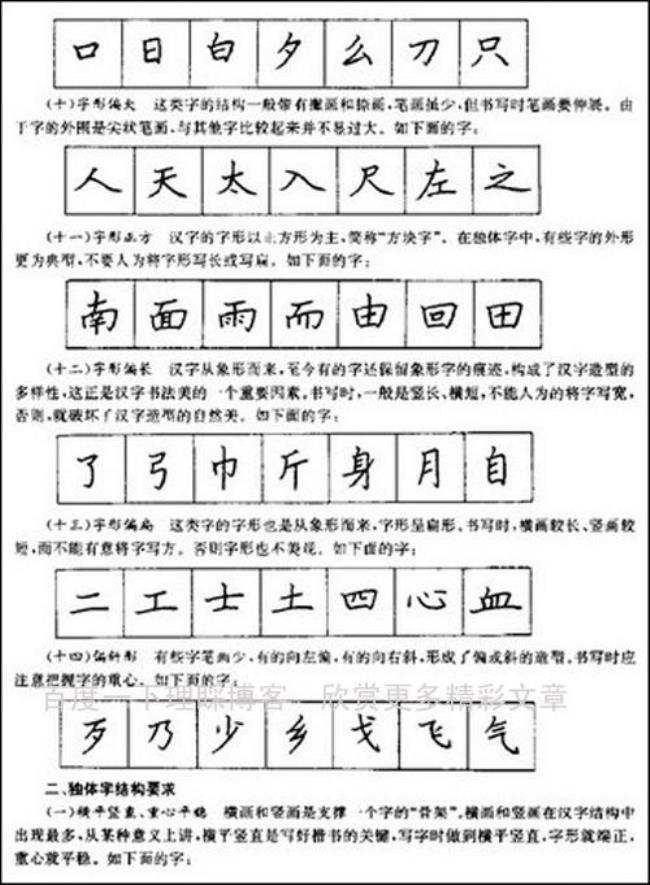 口 日 白 夕 么 刀 只
(十)字形偏大 这类字的结构一般带有撇画和捺画,笔画虽少,但书写时笔画要伸展。由
于字的外围是尖状笔画,与其他字比较起来并不易过大。如下面的字:
人 天 太 入 尺 左 之
(十一)字形正方 汉字的字形以正方形为主,简称“方块字”。在独体字中,有些字的外形
更为典型,不要人为将字形写长或写扁。如下面的字:
南 面 雨 而 由 回 田
(十二)字形偏长 汉字从象形而来,至今有的字还保留象形字的痕迹,构成了汉字造型的
多样性,这正是汉字书法美的一个重要因素。书写时,一般是竖长、横短,不能人为的将字写宽,
否则,就破坏了汉字造型的自然美。如下面的字:
了 弓 巾 斤 身 月 自
(十三)字形偏扁 这类字的字形也是从象形而来,字形呈扁形。书写时,横画较长、竖画较
短,而不能有意将字写方。否则字形也不美观。如下面的字:
二 工 士 土 四 心 血
(十四)偏斜形 有些字笔画少,有的向左偏,有的向右斜,形成了偏或斜的造型。书写时应
注意把握字的重心。如下面的字:
百度一下理睬博客 欣赏更多精彩文章
歹 乃 少 乡 戈 飞 气
二、独体字结构要求
(一)横平竖直、重心平稳 横画和竖画是支撑一个字的“骨架”。横画和竖画在汉字结构中
出现最多,从某种意义上讲,横平竖直是写好楷书的关键,写字时做到横平竖直,字形就端正,
重心就平稳。如下面的字: